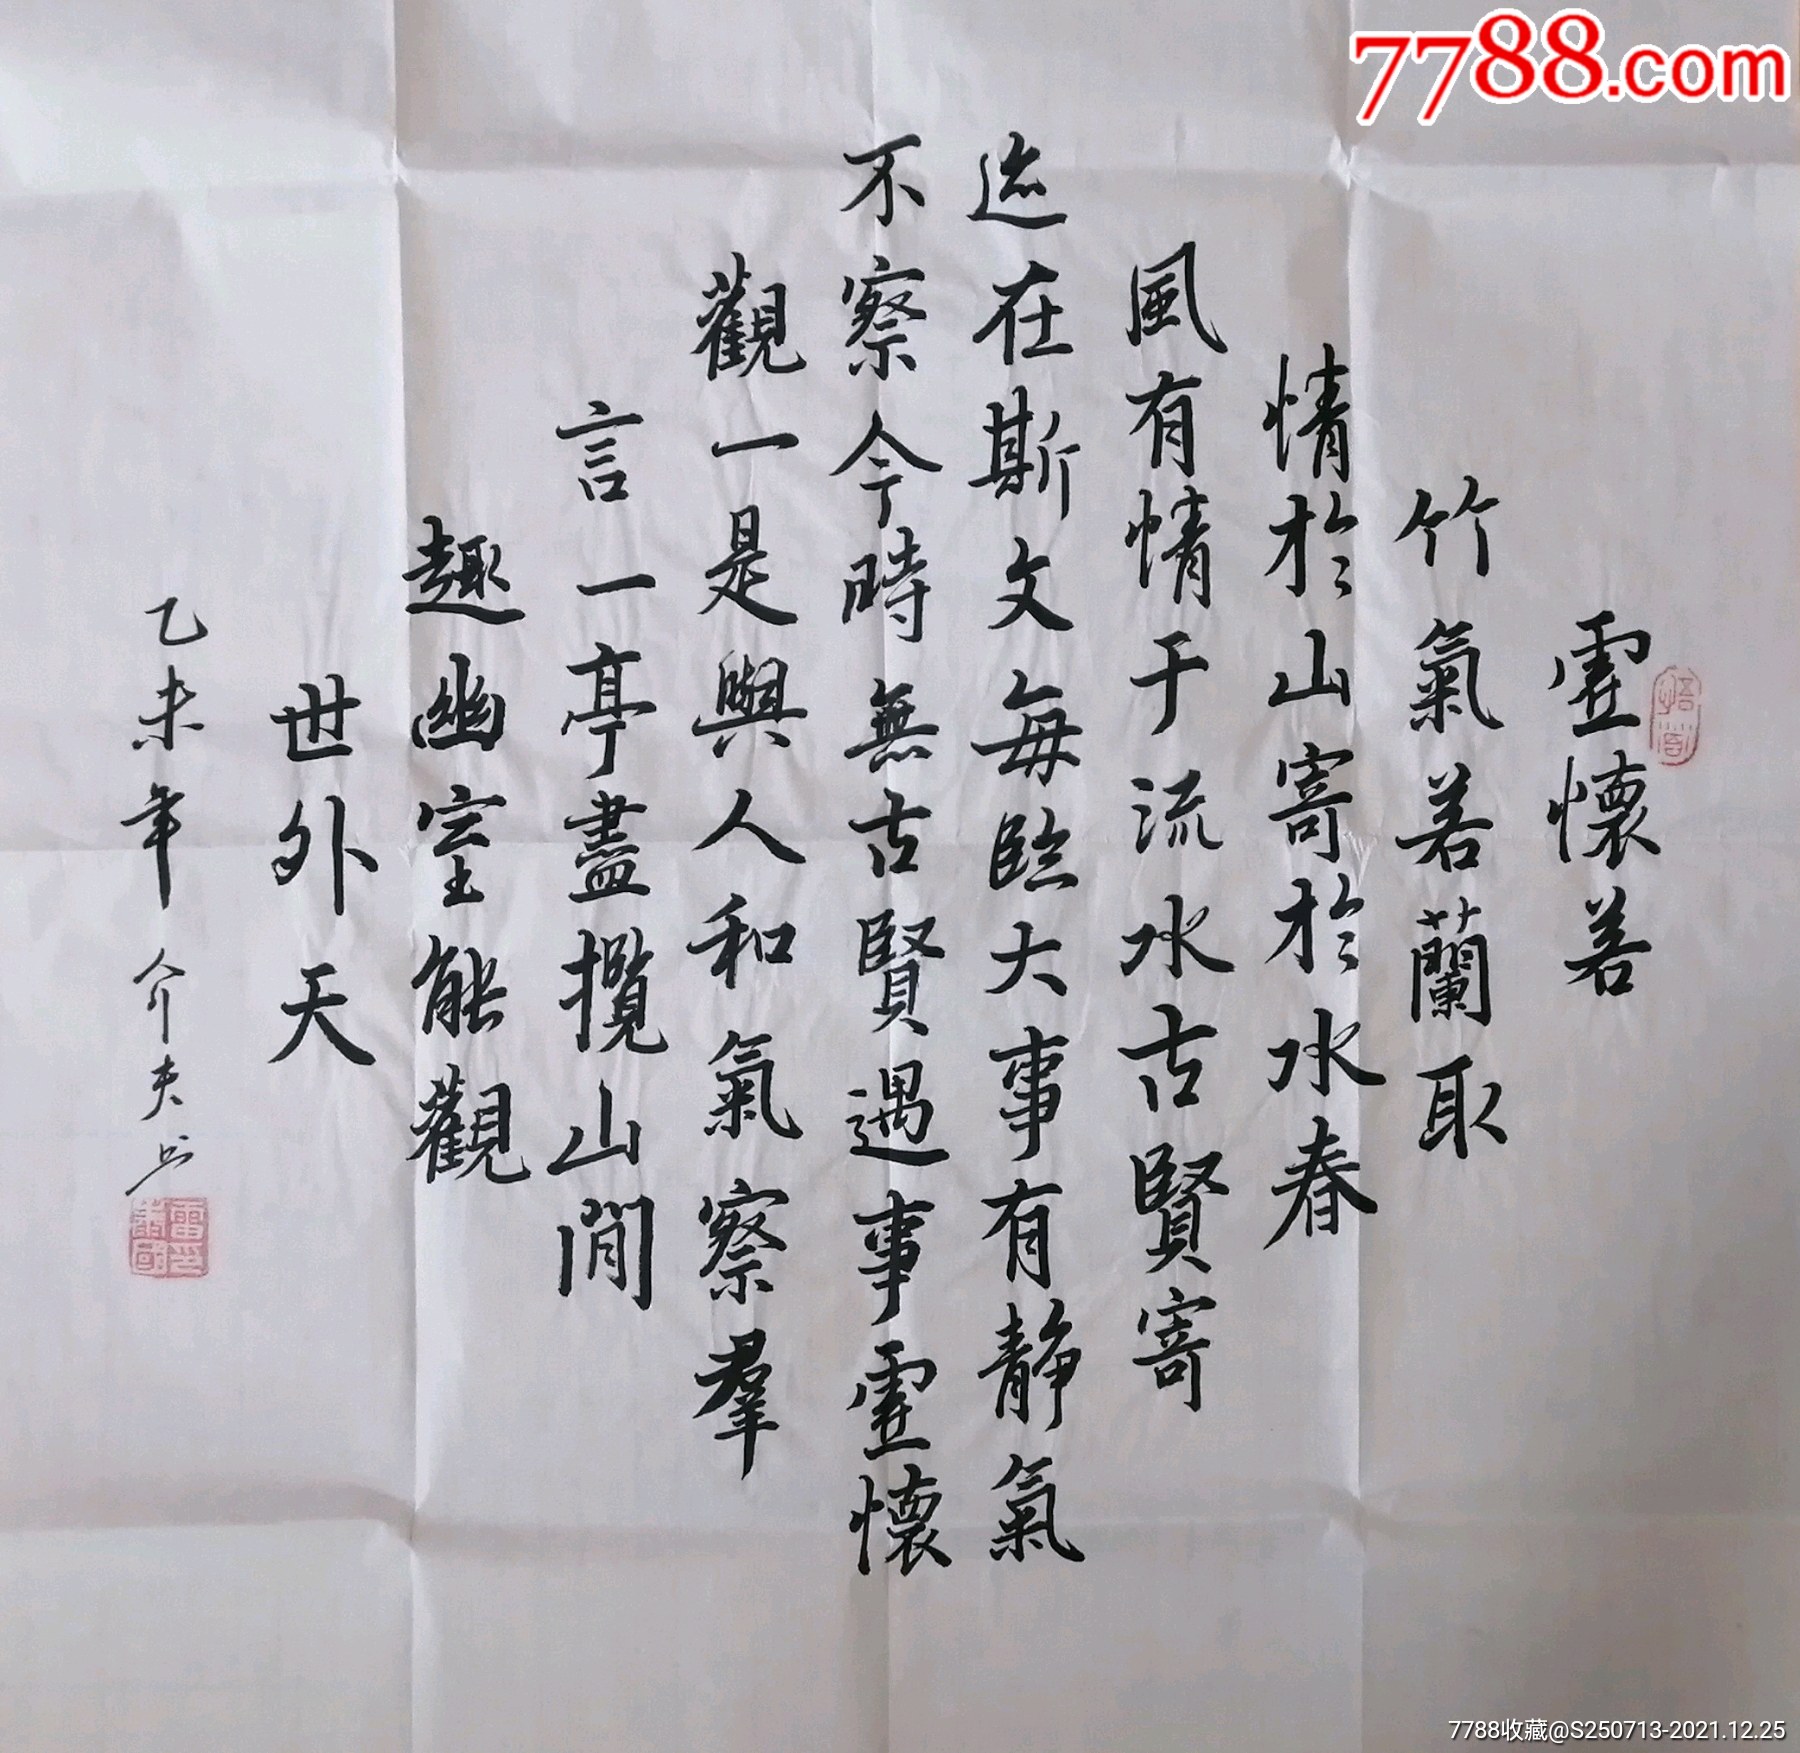 7788.com
虛懷若
竹氣若蘭取
情於山寄於水春
風有情于流水古賢寄
迹在斯文每臨大事有静氣
不察今時無古賢遇事虛懷
觀一是與人和氣察羣
言一亭盡攬山間
趣幽室能觀
世外天
乙未年 介夫书
7788收藏@S250713-2021.12.25